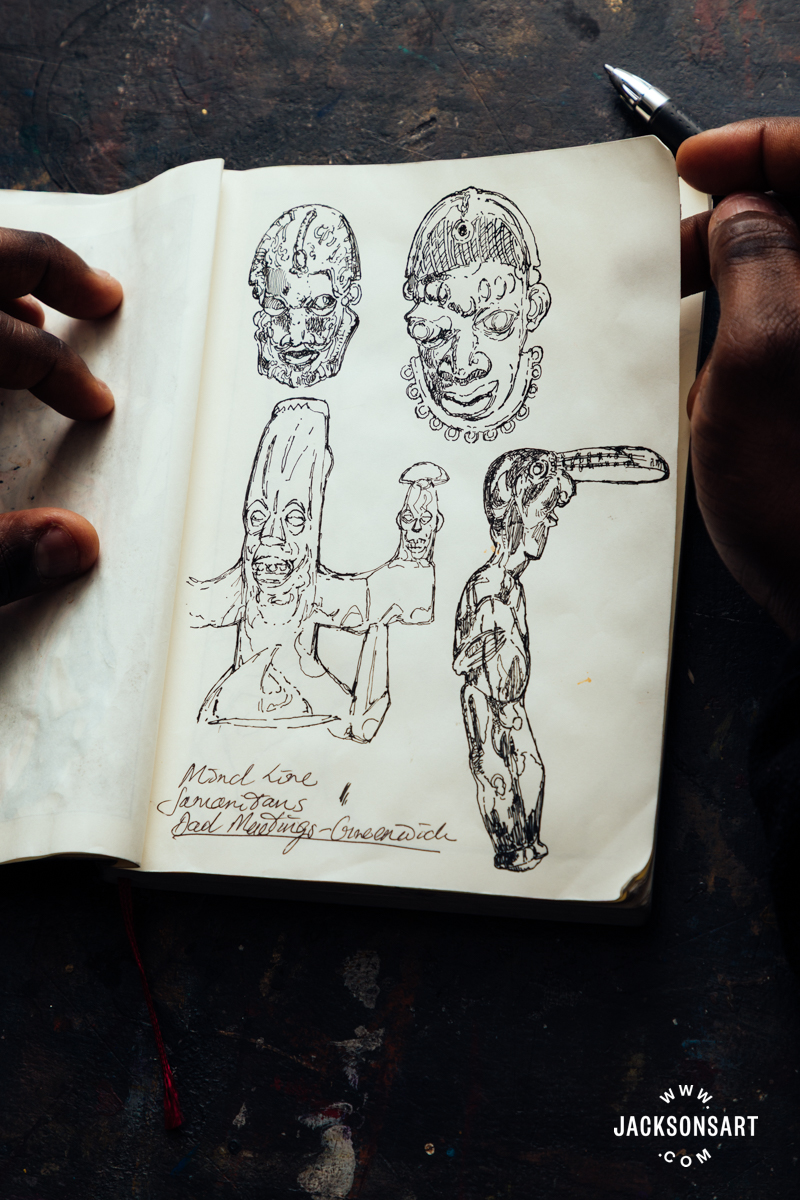 Mind Line
Samaritans
Dad Meetings - Greenwich
WWW.
JACKSONSART
.COM